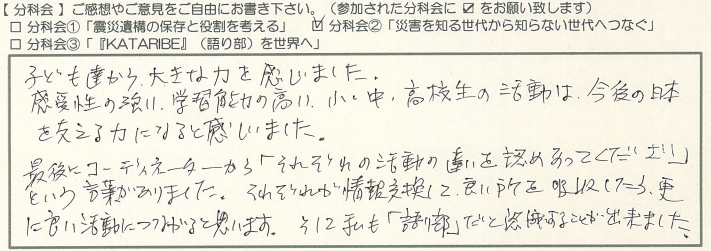 【 分科会 】ご感想やご意見をご自由にお書き下さい。（参加された分科会に ☑ をお願い致します）
□ 分科会①「震災遺構の保存と役割を考える」 ☑ 分科会②「災害を知る世代から知らない世代へつなぐ」
□ 分科会③「『KATARIBE』（語り部）を世界へ」
子ども達から、大きな力を感じました。
感受性の強い、学習能力の高い、小・中・高校生の活動は、今後の日本
を支える力になると感じました。
最後にコーディネーターから「それぞれの活動の違いを認めあってください」
という言葉がありました。それぞれが情報交換して、良い所を吸収したら、更
に良い活動につながると思います。そして私も「語り部」だと認識することが出来ました。